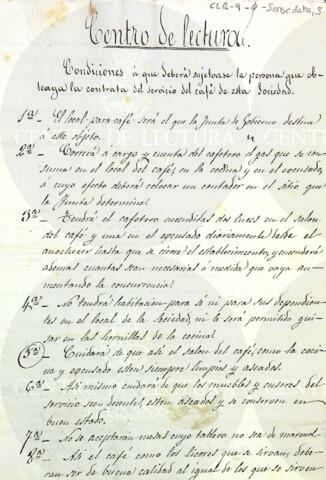 CLR-9-9-Sense data, 3
Centro de lectura.
Condiciones á que deberá sujetarse la persona que ob-
tenga la contrata del servicio del café de esta Sociedad.
1ª— El local para café será el que la Junta de Gobierno destine
á este objeto.
2ª— Correrá á cargo y cuenta del cafetero el gas que se con-
suma en el local del café, en la cocina y en el escusado,
á cuyo efecto deberá colocar un contador en el sitio que
la Junta determine.
3ª— Tendrá el cafetero encendidas dos luces en el salon
del café y una en el escusado diariamente desde el
anochecer hasta que se cierre el establecimiento, y encenderá
además cuantas sean necesarias á medida que vaya au-
mentando la concurrencia.
4ª— No tendrá habitacion para sí ni para sus dependien-
tes en el local de la Sociedad, ni le será permitido gui-
sar en las hornillas de la cocina.
5ª— Cuidará de que así el salon del café, como la coci-
na y escusado esten siempre limpios y aseados.
6ª— Asi mismo cuidará de que los muebles y enseres del
servicio sean decentes, esten aseados y se conserven en
buen estado.
7ª— No se aceptarán mesas cuyo tablero no sea de marmol.
8ª— Así el café como los licores que se sirvan, debe-
ran ser de buena calidad al igual de los que se sirven